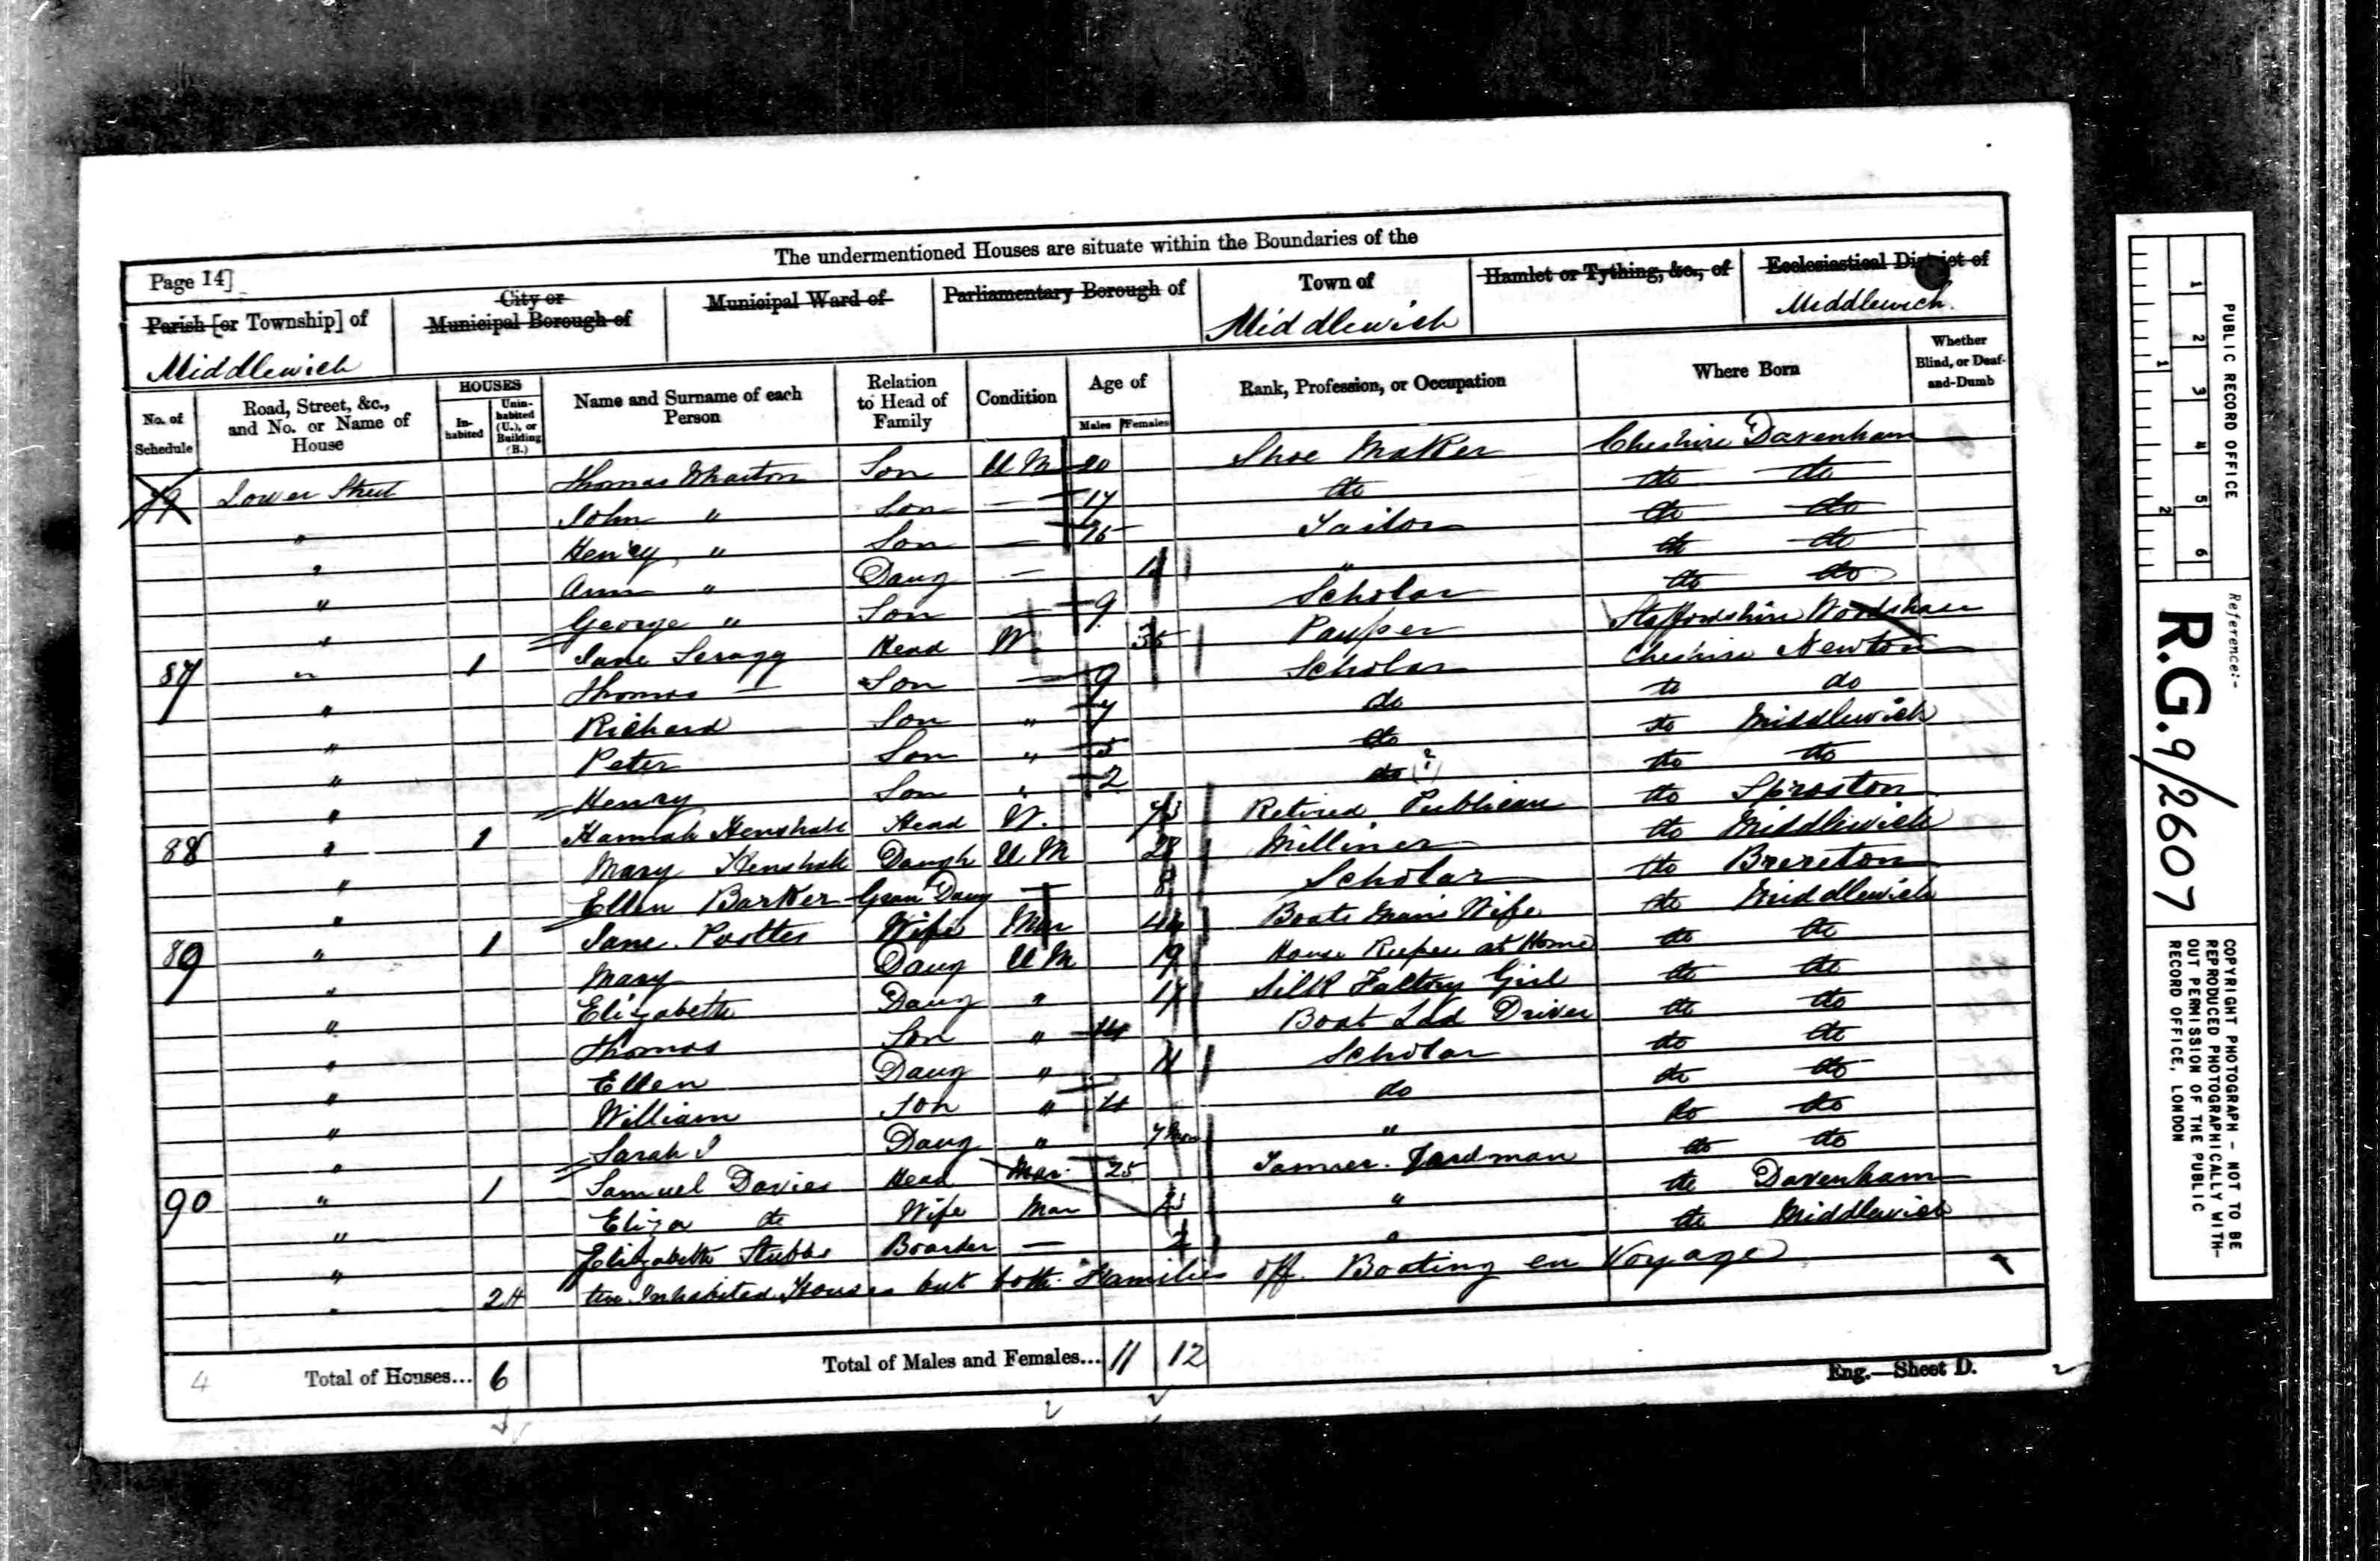 The undermentioned Houses are situate within the Boundaries of the
Page 14]
Parish [or Township] of
City or
Municipal Borough of
Municipal Ward of
Parliamentary Borough of
Town of
Hamlet or Tything, &c., of
Ecclesiastical District of
Middlewich
Middlewich
Middlewich.
No. of Schedule
Road, Street, &c., and No. or Name of House
HOUSES
In-habited
Unin-habited (U.), or Building (B.)
Name and Surname of each Person
Relation to Head of Family
Condition
Age of
Males Females
Rank, Profession, or Occupation
Where Born
Whether Blind, or Deaf-and-Dumb
Lower Street Thomas Wharton Son U M 20 Shoe Maker Cheshire Davenham
" John " Son — 17 do do do
" Henry " Son — 15 Tailor do do
" Ann " Daug — " do do
" George " Son — 9 Scholar do do
87 " 1 Jane Scragg Head W. Pauper Staffordshire
" Thomas — Son — 9 Scholar Cheshire Newton
" Richard Son " 7 do do do
" Peter Son " 5 do do Middlewich
" Henry Son " 2 do (?) do do
88 " 1 Hannah Henshall Head W. 73 Retired Publican do Sproston
" Mary Henshall Daugh U M 28 Milliner do Middlewich
" Ellen Barker Gran Daug — 8 Scholar do Brereton
89 " 1 Jane Wife Mar Boats Man's Wife do Middlewich
" Mary Daug U M 19 House Keeper at Home do do
" Elizabeth Daug " 17 Silk Factory Girl do do
" Thomas Son " 14 Boat Lad Driver do do
" Ellen Daug " 11 Scholar do do
" William Son " 4 do do do
" Sarah J Daug " 7 Mon " do do
90 " 1 Samuel Davies Head Mar. 25 Tanner. Yardman do do
" Eliza do Wife Mar " do Davenham
" Elizabeth Stubbs Boarder — 2 " do Middlewich
" 2 H two Inhabited Houses but both Families off Boating en Voyage
4 Total of Houses... 6 Total of Males and Females... 11 12
Eng.—Sheet D.
PUBLIC RECORD OFFICE
1 2 3 4 5 6
1 2
Reference:-
R.G. 9/2607
COPYRIGHT PHOTOGRAPH - NOT TO BE
REPRODUCED PHOTOGRAPHICALLY WITH-
OUT PERMISSION OF THE PUBLIC
RECORD OFFICE, LONDON